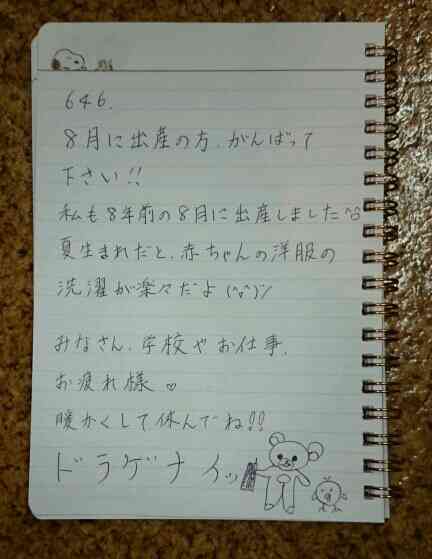 646.
8月に出産の方、がんばって
下さい!!
私も8年前の8月に出産しました^^
夏生まれだと、赤ちゃんの洋服の
洗濯が楽々だよ(^o^)/
みなさん、学校やお仕事、
お疲れ様♡
暖かくして休んでね!!
ドラゲナイッ